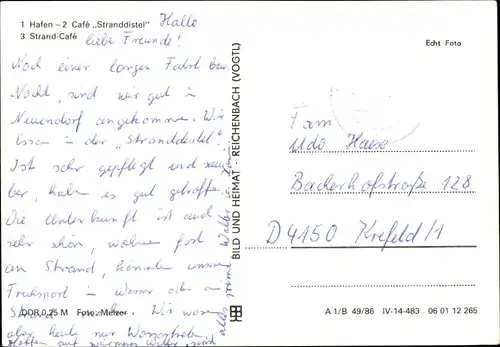 1 Hafen – 2 Café „Stranddistel"
3 Strand-Café
Hallo
liebe Freunde!
Noch einer langen Fahrt bzw.
Nacht, sind wir gut in
Neuendorf angekommen. Wir
essen in der „Stranddistel".
Ist sehr gepflegt und sau-
ber, haben es gut getroffen.
Die Unterkunft ist auch
sehr schön, wohnen fast
am Strand, könnten unseren
Frühsport in Wasser oder am
Wir waren
aber heute nur Wassertreten.
Hoffen auf wärmeres Wetter, sonst
alles prima
BILD UND HEIMAT REICHENBACH (VOGTL)
Echt Foto
Fam
Udo Hase
Backerhofstraße 128
D 4150 Krefeld/1
DDR 0,25 M Foto: Melzer
A 1/B 49/86 IV-14-483 06 01 12 265